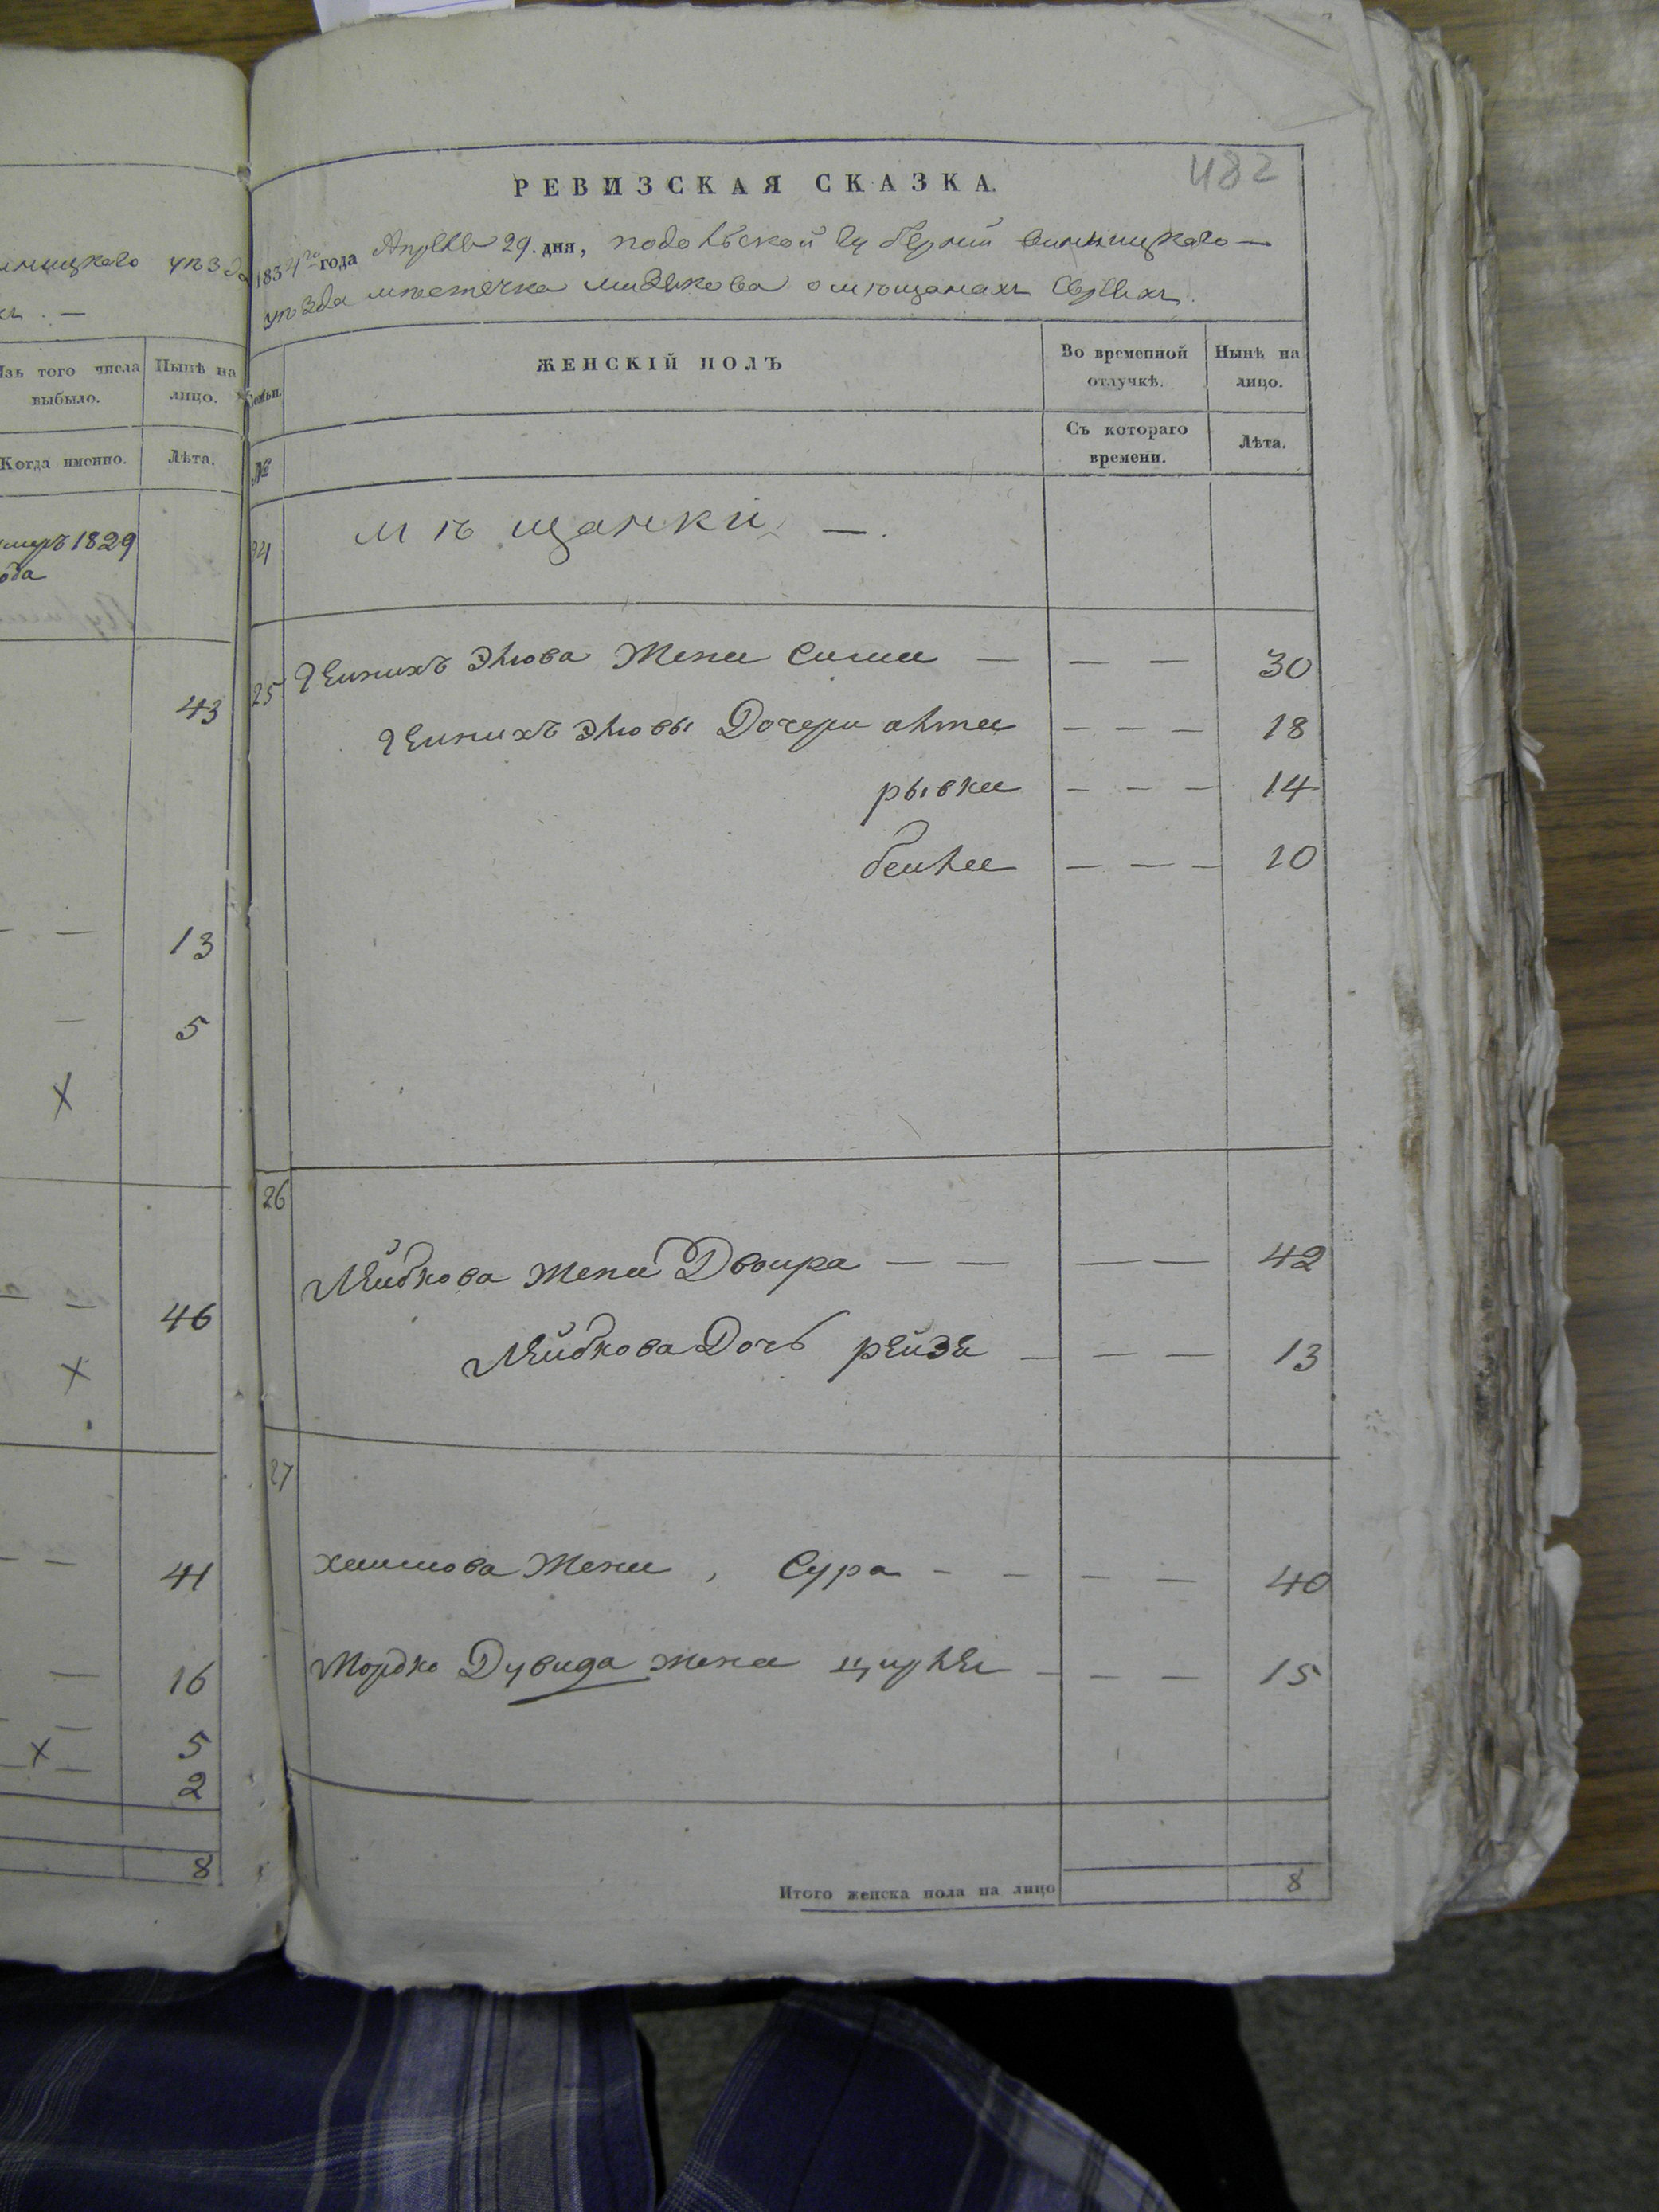 482
РЕВИЗСКАЯ СКАЗКА.
1834го года Апреля 29. дня, подольской губерніи винницкаго —
уѣзда мѣстечка о мѣщанахъ Евреяхъ.
Семьи.
ЖЕНСКІЙ ПОЛЪ
Во временной отлучкѣ.
Нынѣ на лицо.
№
Съ котораго времени.
Лѣта.
24 мѣщанки —.
25 Геинихъ Элюва жена Сима — — — 30
Геинихъ Элювы дочери — — — 18
рывка — — — 14
бейла — — — 10
26
Лейбкова жена Двоира — — — — 42
Лейбкова Дочь рейзя — — — 13
27
хаимова жена, Сура — — — — 40
Мордко Дувида жена цирля — — — 15
Итого женска пола на лицо 8
уѣзда
Изъ того числа выбыло.
Нынѣ на лицо.
Когда именно.
Лѣта.
умеръ 1829
года
43
— — 13
— 5
X
— 46
X
— — 41
— 16
— 5
X — 2
8